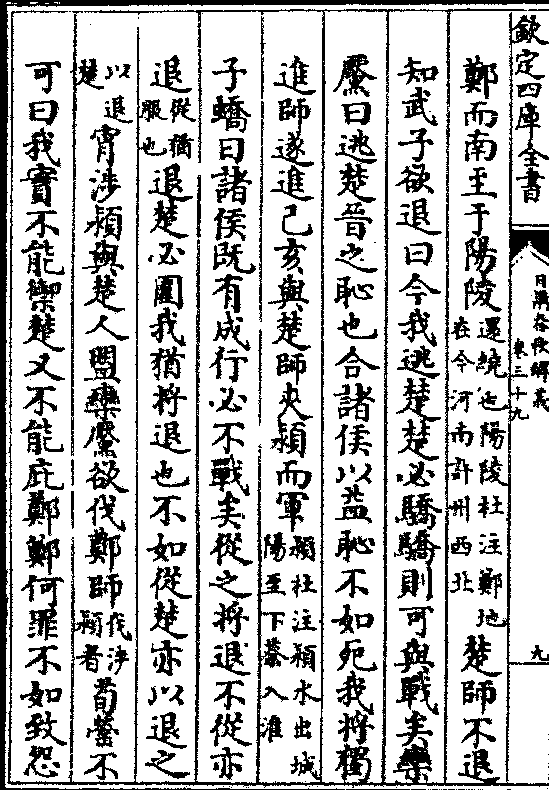 欽定四庫全書
日講春秋解義
卷三十九
九
鄭而南至于陽陵還繞也陽陵杜注鄭地在今河南許州西北楚師不退
知武子欲退曰今我逃楚楚必驕驕則可與戰矣欒
黶曰逃楚晉之恥也合諸侯以益恥不如死我將獨
進師遂進己亥與楚師夾潁而軍潁杜注潁水出城陽至下蔡入淮
子蟜曰諸侯既有成行必不戰矣從之將退不從亦
退從猶服也退楚必圍我猶將退也不如從楚亦以退之
以退楚宵涉潁與楚人盟欒黶欲伐鄭師伐涉潁者荀罃不
可曰我實不能禦楚又不能庇鄭鄭何罪不如致怨